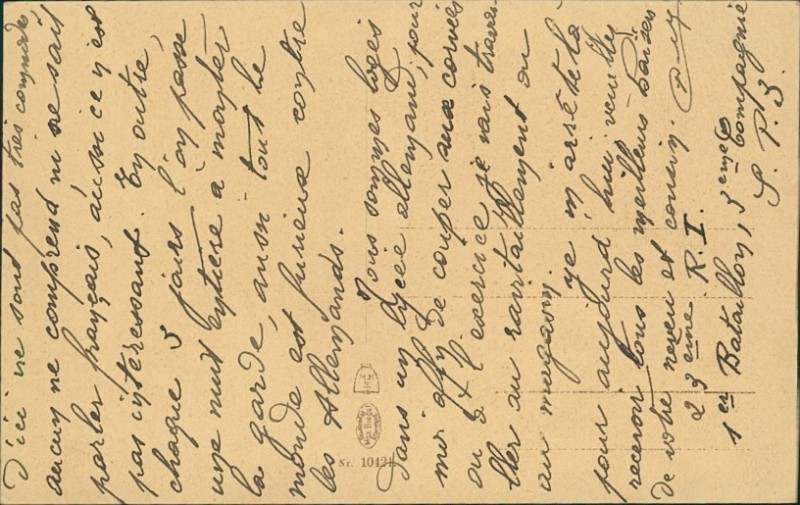 d'ici ne sont pas très commodes
aucun ne comprend ni ne sait
parler français, aussi ce n'est
pas intéressant. En outre,
chaque 5 jours l'on passe
une nuit entière a monter
la garde, aussi tout le
monde est furieux contre
les Allemands.
Nous sommes logés
dans un lycée allemand, pour
moi afin de couper aux corvées
ou à l'exercice je vais travai
ller au ravitaillement ou
au magasin.
Je m'arrête là
pour aujourd'hui veuillez
recevoir tous les meilleurs baisers
de votre neveu et cousin.
23eme R. I.
1er Bataillon, 3eme Compagnie
S. P. 3.
Nr. 10421